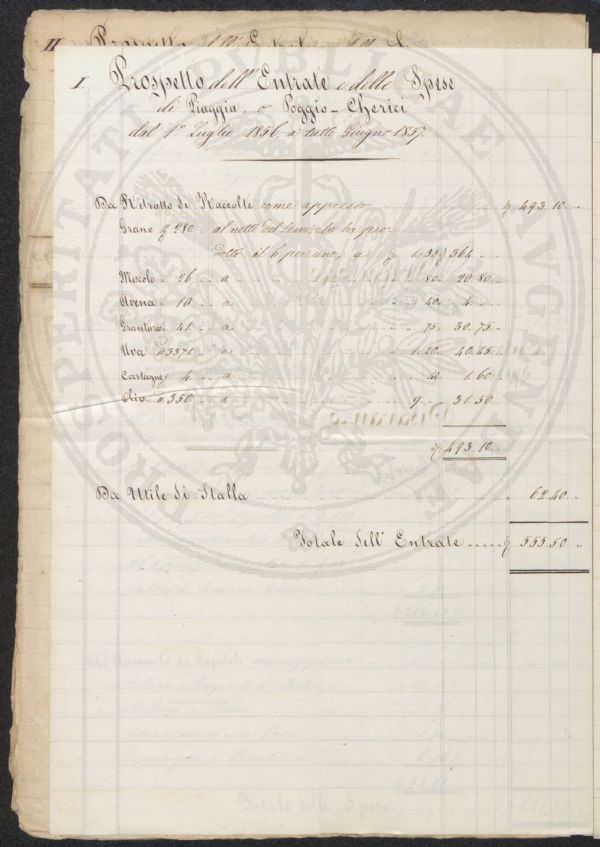 II Prospetto dell'Entrate
I. Prospetto dell'Entrate e delle Spese
di Piaggia, o Poggio-Cherici
dal 1º Luglio 1856 a tutto Giugno 1857.
Da Ritratto di Raccolte come appresso 493.10..
Grano 280. al netto del seme
a 1.30 364
Mescolo 26 a 80 20.80
Avena 10 a 40 4
Granturco 41 a 75 30.75
Uva 3371 a 1.20 40.45
Castagne 4 a 40 1.60
Olio 350 a 9 31.50
493.10
Da Utile di Stalla 62.40
Totale dell'Entrate 555.50
PROSPERITATI PUBLICAE AVGENDAE